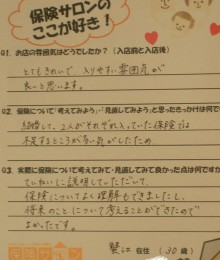 保険サロンの
ここが好き!
Q1. お店の雰囲気はどうでしたか?(入店前と入店後)
とてもきれいで、入りやすい雰囲気が
良いと思います。
Q2. 保険について「考えてみよう」・「見直してみよう」と思ったきっかけは何で
結婚して、2人がそれぞれ入っていた保険では
不足するところが多い気がしたため
Q3. 実際に保険について考えてみて・見直してみて良かった点は何ですか
ていねいに説明していただいて、
保険についてよく理解もできましたし、
将来のことについて考えることができたので
よかったです。
蟹江 在住 (30歳)